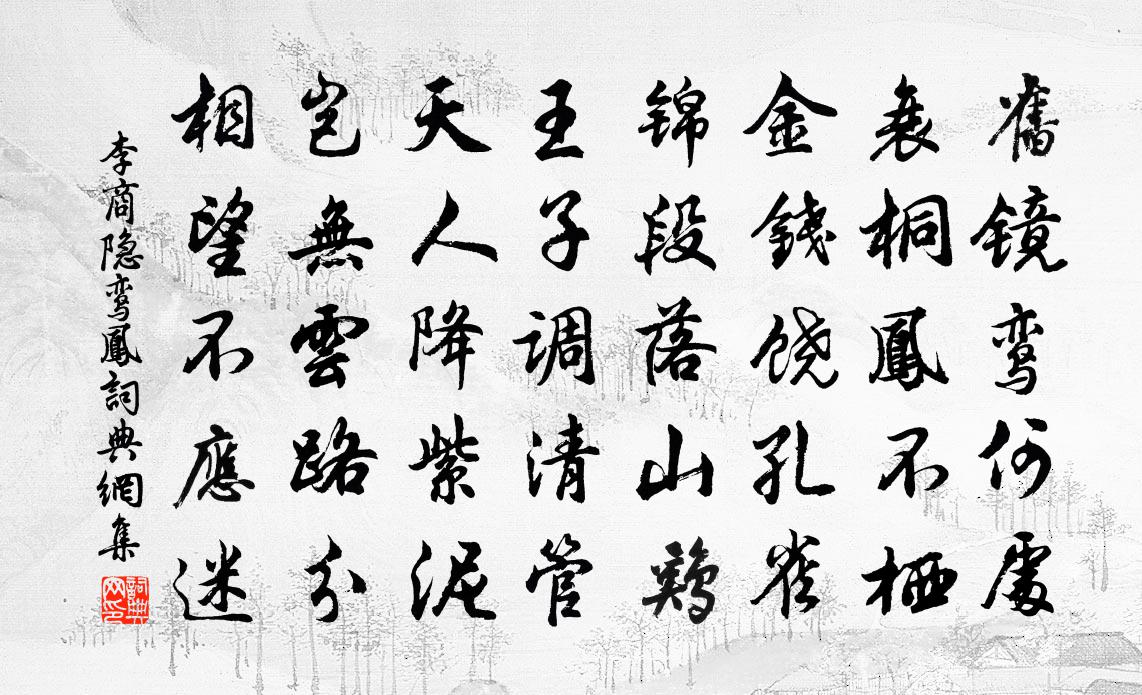 舊镜鸾何處
衰桐鳳不栖
金錢饶孔雀
锦段落山鸡
王子调清管
天人降紫泥
岂無雲路分
相望不應迷
李商隐鸾鳳詞典網集
詞典网印